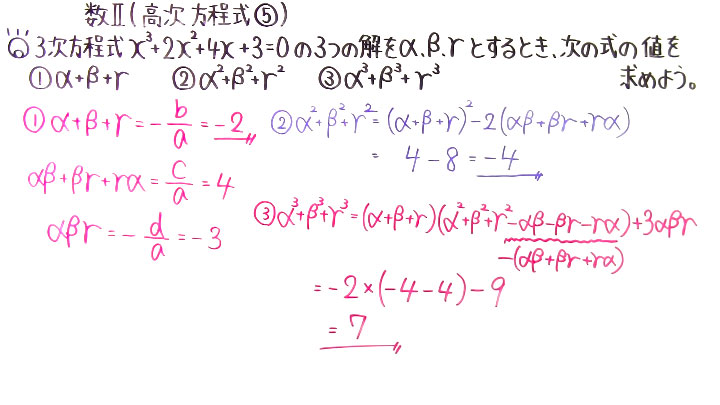 数Ⅱ(高次方程式⑤)
3次方程式x³+2x²+4x+3=0の3つの解をα、β、γとするとき、次の式の値を
①α+β+γ ②α²+β²+γ² ③α³+β³+γ³ 求めよう。
①α+β+γ=-b/a=-2
αβ+βγ+γα=c/a=4
αβγ=-d/a=-3
②α²+β²+γ²=(α+β+γ)²-2(αβ+βγ+γα)
= 4-8=-4
③α³+β³+γ³=(α+β+γ)(α²+β²+γ²-αβ-βγ-γα)+3αβγ
-(αβ+βγ+γα)
=-2×(-4-4)-9
=7